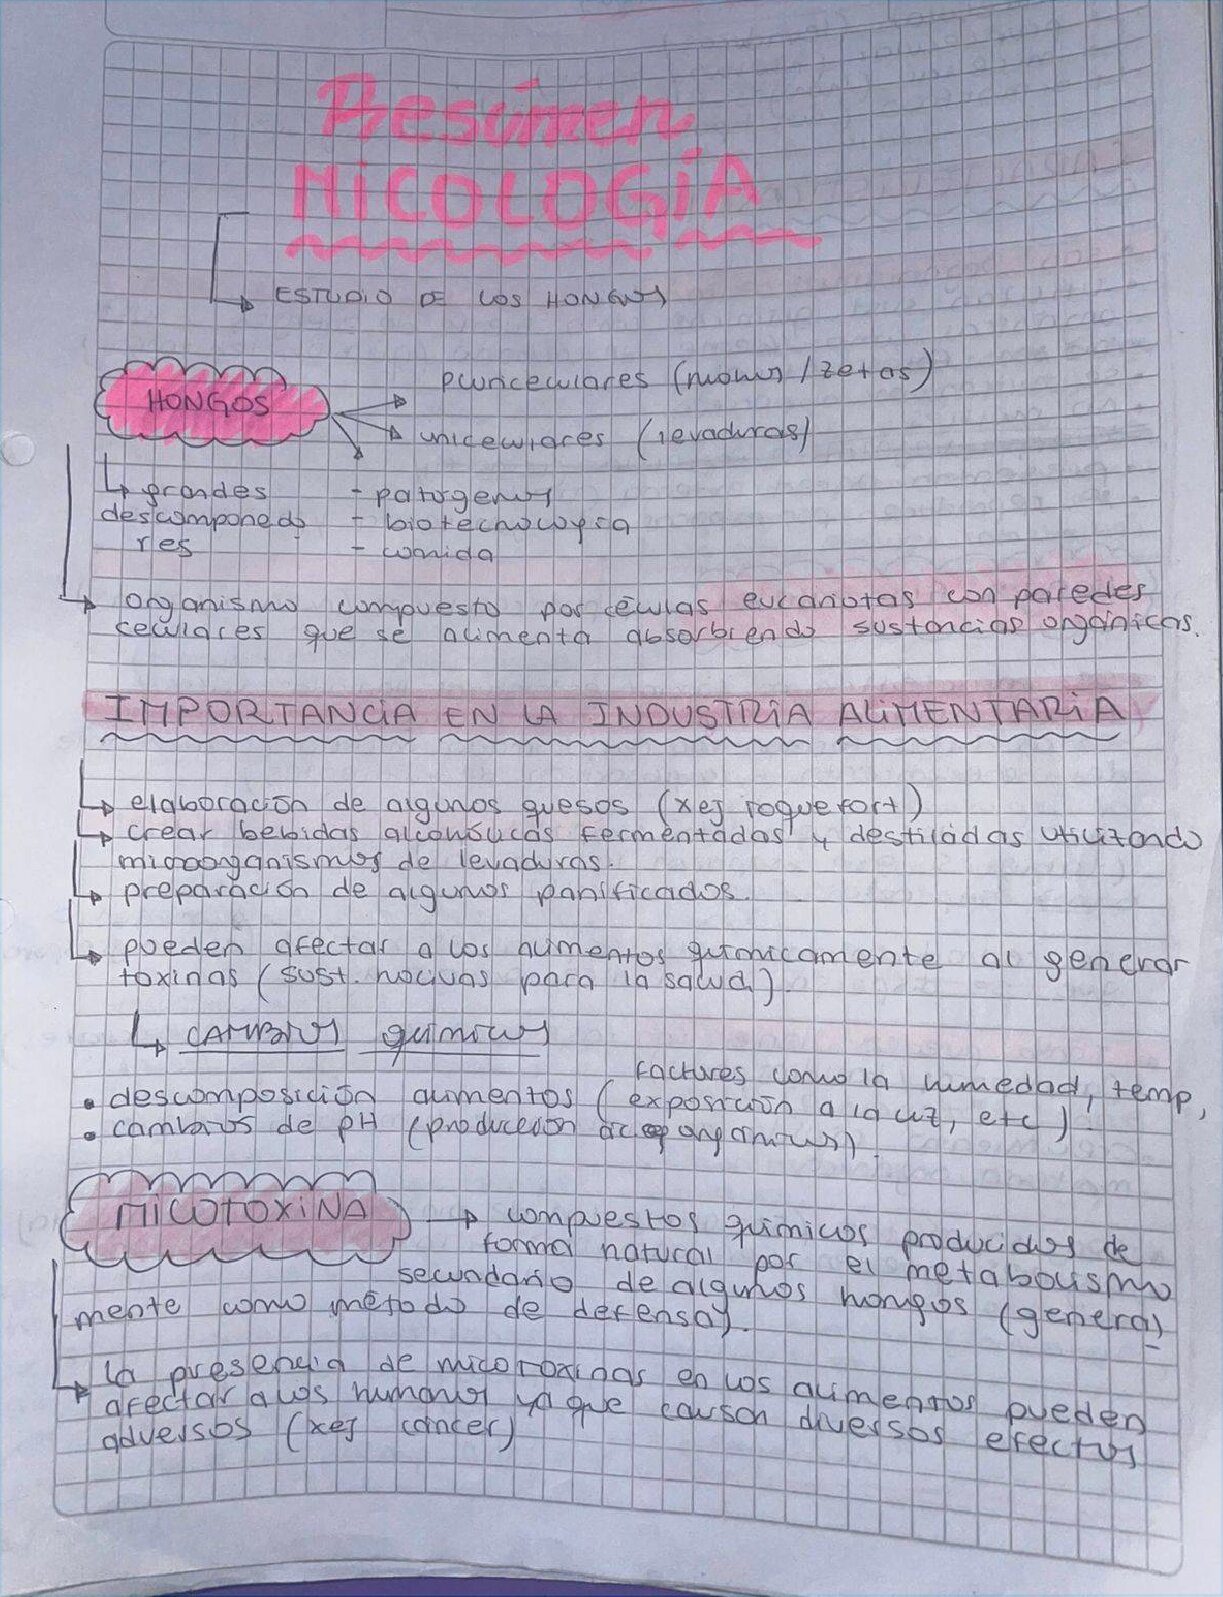 Resúmen
MiCOLOGíA
ESTUDIO DE LOS HONGOS
HONGOS
pluricelulares (mohos / zetas)
unicelulares (levaduras)
grandes
descomponedo
res
- patogenos
- biotecnologica
- comida
organismo compuesto por células eucariotas con paredes
celulares que se alimenta absorbiendo sustancias orgánicas.
IMPORTANCiA EN LA INDUSTRiA ALiMENTARiA
elaboración de algunos quesos (xej roquefort)
crear bebidas alcohólicas fermentadas y destiladas utilizando
microorganismos de levaduras.
preparación de algunos panificados.
pueden afectar a los alimentos químicamente al generar
toxinas (sust. nocivas para la salud).
CAMBIOS químicos
factores como la humedad, temp,
• descomposición alimentos ( exposición a la luz, etc)
• cambios de pH (produccion ac organicos).
MiCOTOXiNA
compuestos químicos producidos de
forma natural por el metabolismo
secundario de algunos hongos (general
mente como método de defensa).
la presencia de micotoxinas en los alimentos pueden
afectar a los humanos ya que causan diversos efectos
adversos (xej cáncer)